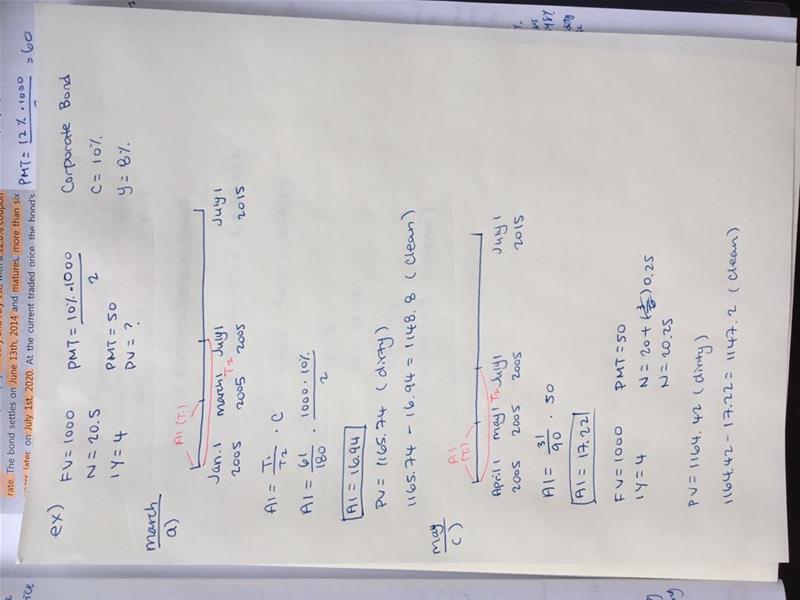 rate. The bond settles on June 13th, 2014 and matures, more than six
later, on July 1st, 2020. At the current traded price, the bond's
PMT = 12% · 1000 = 60
ex)
FV = 1000 PMT = 10% · 1000 Corporate Bond
2
N = 20.5 C = 10%
IY = 4 PMT = 50 Y = 8%
PV = ?
march
a)
AI (T1)
T2
Jan. 1 march 1 July 1 July 1
2005 2005 2005 2015
AI = T1 / T2 · C
AI = 61 / 180 · 1000 · 10% / 2
AI = 16.94
PV = 1165.74 (dirty)
1165.74 - 16.94 = 1148.8 (clean)
may
c)
AI (T1)
T2
April 1 may 1 July 1 July 1
2005 2005 2005 2015
AI = 31 / 90 · 50
AI = 17.22
FV = 1000 PMT = 50
IY = 4 N = 20 + 0.25
N = 20.25
PV = 1164.42 (dirty)
1164.42 - 17.22 = 1147.2 (clean)